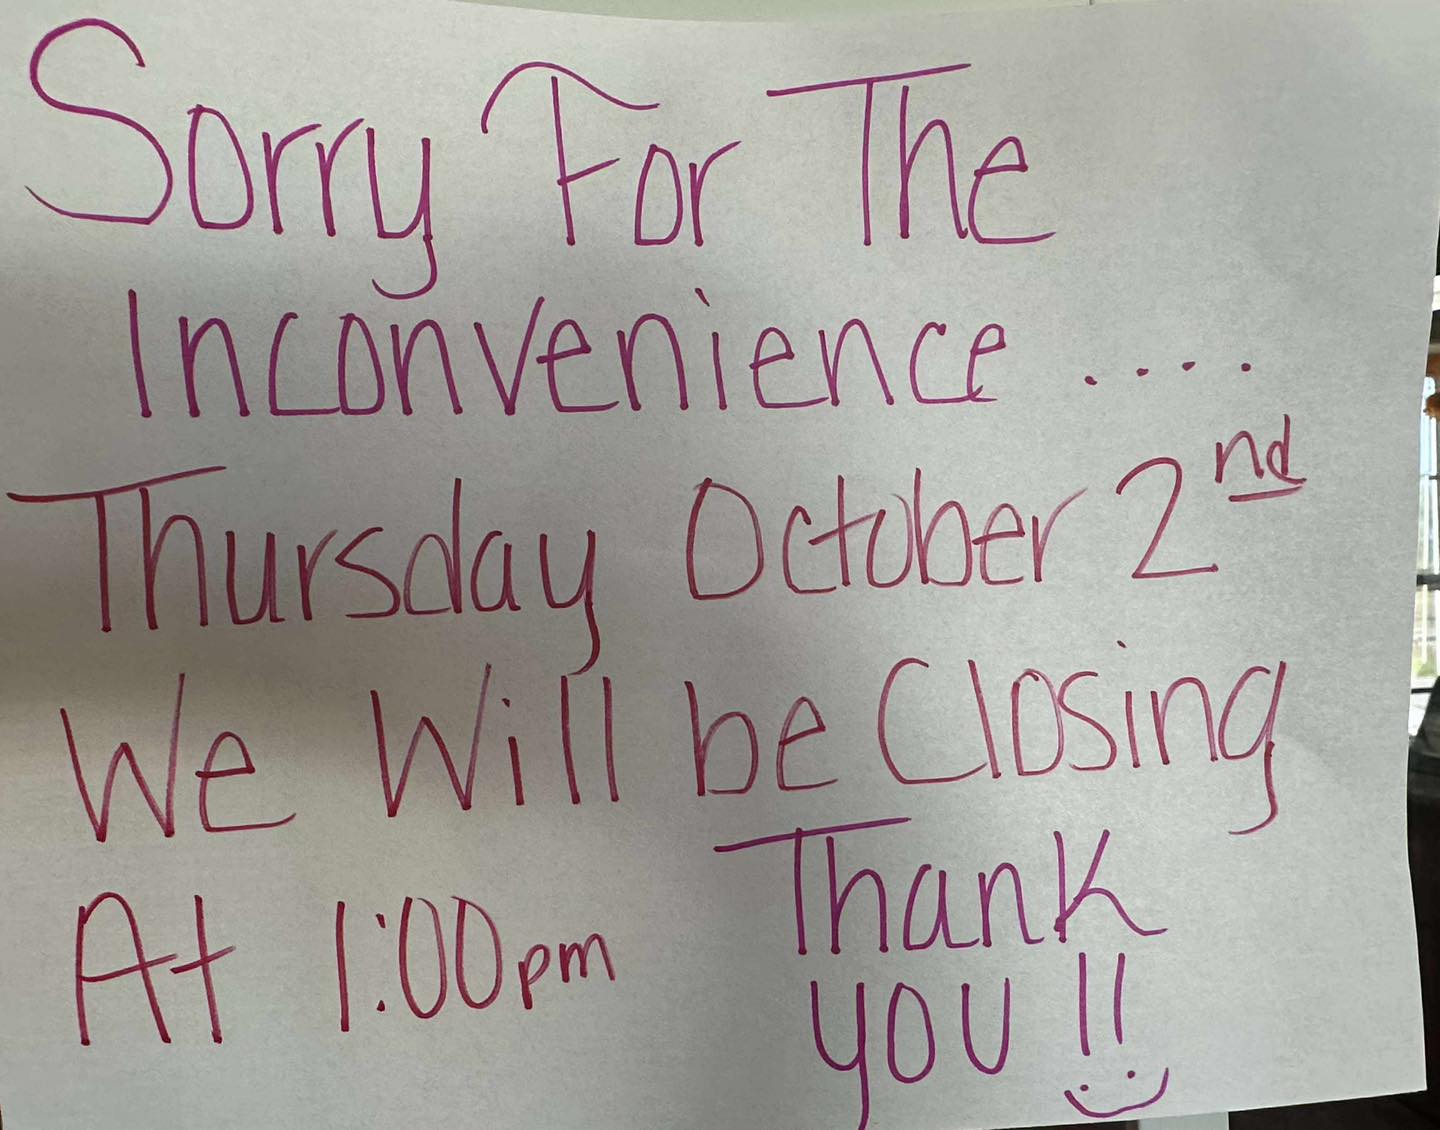 Sorry For The
Inconvenience ....
Thursday October 2nd
We Will be Closing
At 1:00pm
Thank
you !!